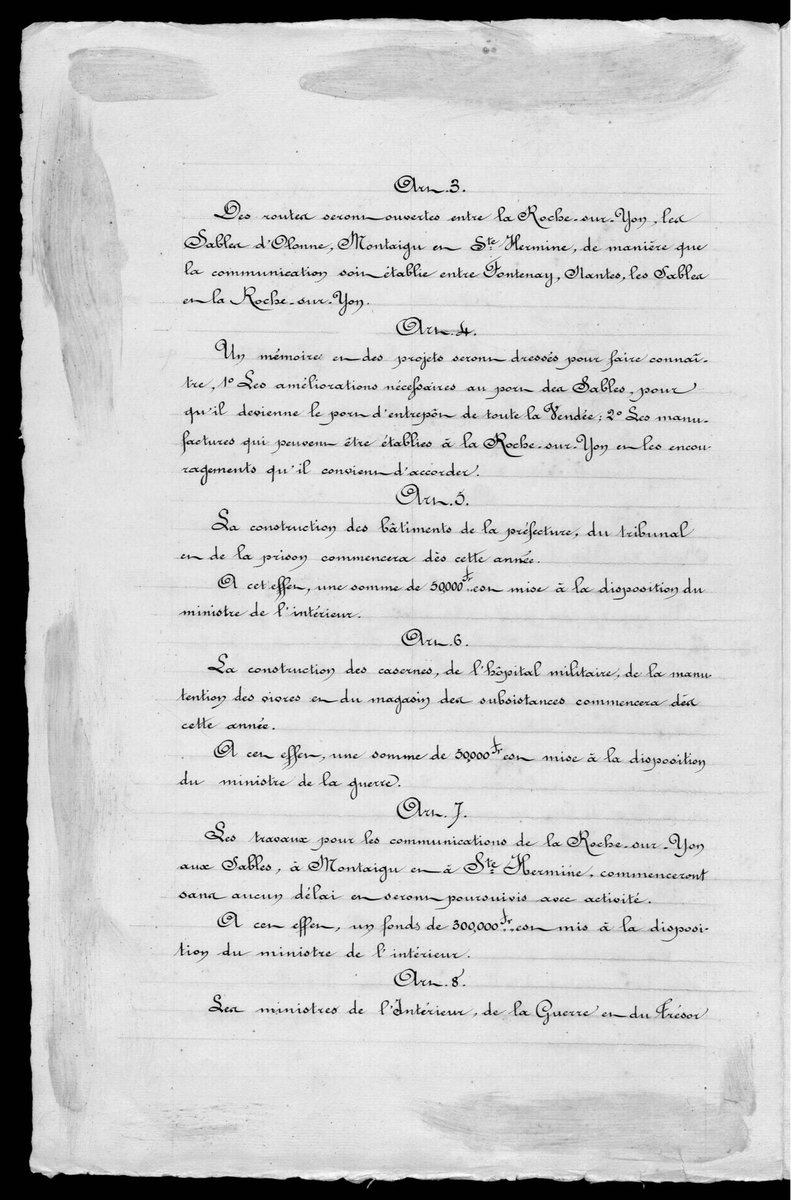 Art. 3.
Des routes seront ouvertes entre la Roche-sur-Yon, les
Sables d'Olonne, Montaigu et Ste Hermine, de manière que
la communication soit établie entre Fontenay, Nantes, les Sables
et la Roche-sur-Yon.
Art. 4.
Un mémoire et des projets seront dressés pour faire connaî-
tre, 1º Les améliorations nécessaires au port des Sables, pour
qu'il devienne le port d'entrepôt de toute la Vendée; 2º Les manu-
factures qui peuvent être établies à la Roche-sur-Yon et les encou-
ragements qu'il convient d'accorder.
Art. 5.
La construction des bâtiments de la préfecture, du tribunal
et de la prison commencera dès cette année.
A cet effet, une somme de 50,000 fr. est mise à la disposition du
ministre de l'intérieur.
Art. 6.
La construction des casernes, de l'hôpital militaire, de la manu-
tention des vivres et du magasin des subsistances commencera dès
cette année.
A cet effet, une somme de 50,000 fr. est mise à la disposition
du ministre de la guerre.
Art. 7.
Les travaux pour les communications de la Roche-sur-Yon
aux Sables, à Montaigu et à Ste Hermine, commenceront
sans aucun délai et seront poursuivis avec activité.
A cet effet, un fonds de 300,000 fr. est mis à la disposi-
tion du ministre de l'intérieur.
Art. 8.
Les ministres de l'Intérieur, de la Guerre et du Trésor